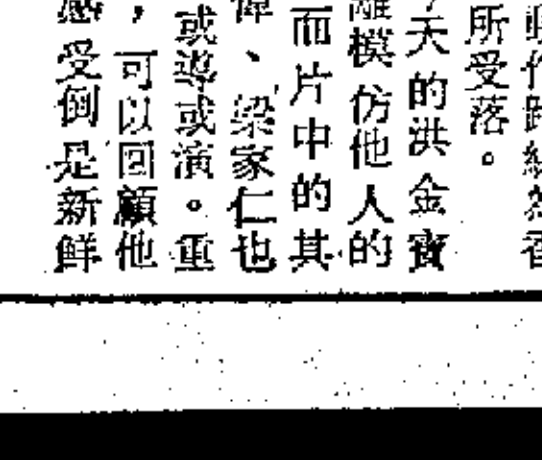 所受落。
天的洪金寶
模仿他人的
而片中的其
偉、梁家仁也
或導或演。重
，可以回顧他
感受倒是新鮮